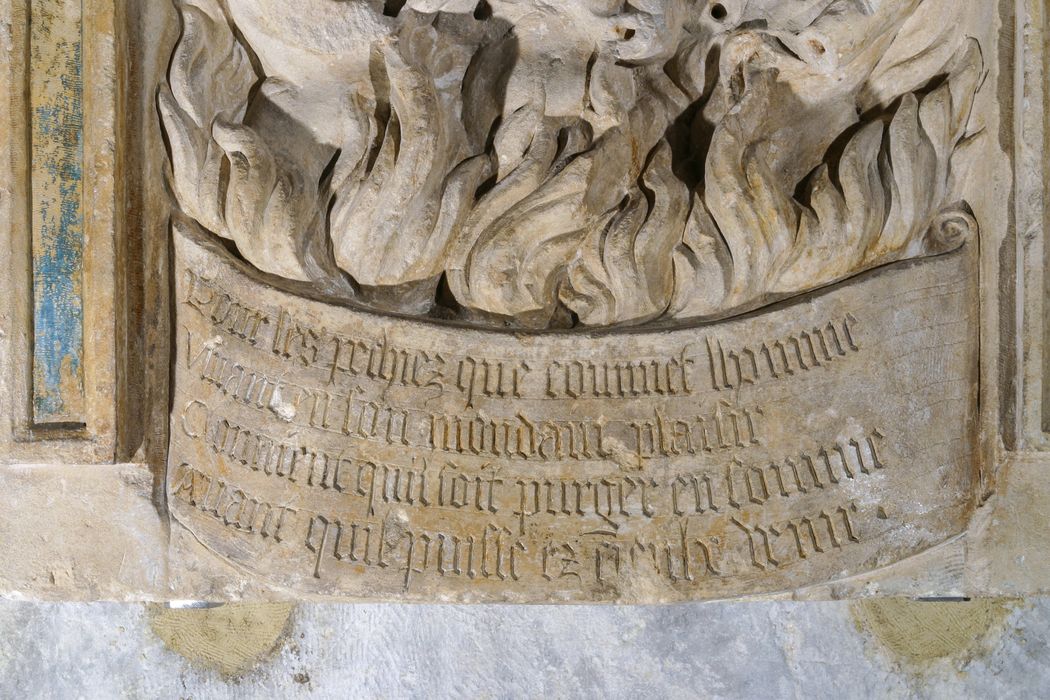 Pour les pechiez que commet lhomme
Vivant en son mondain plaisir
Convient quil soit purger en somme
Avant quil puisse ez cieulx venir